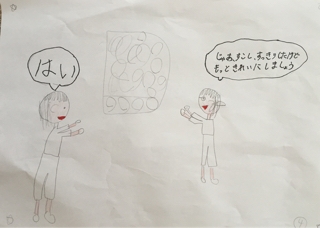 はい
じゃあ、すこし、すっきりしたけど
もっときれいにしましょう